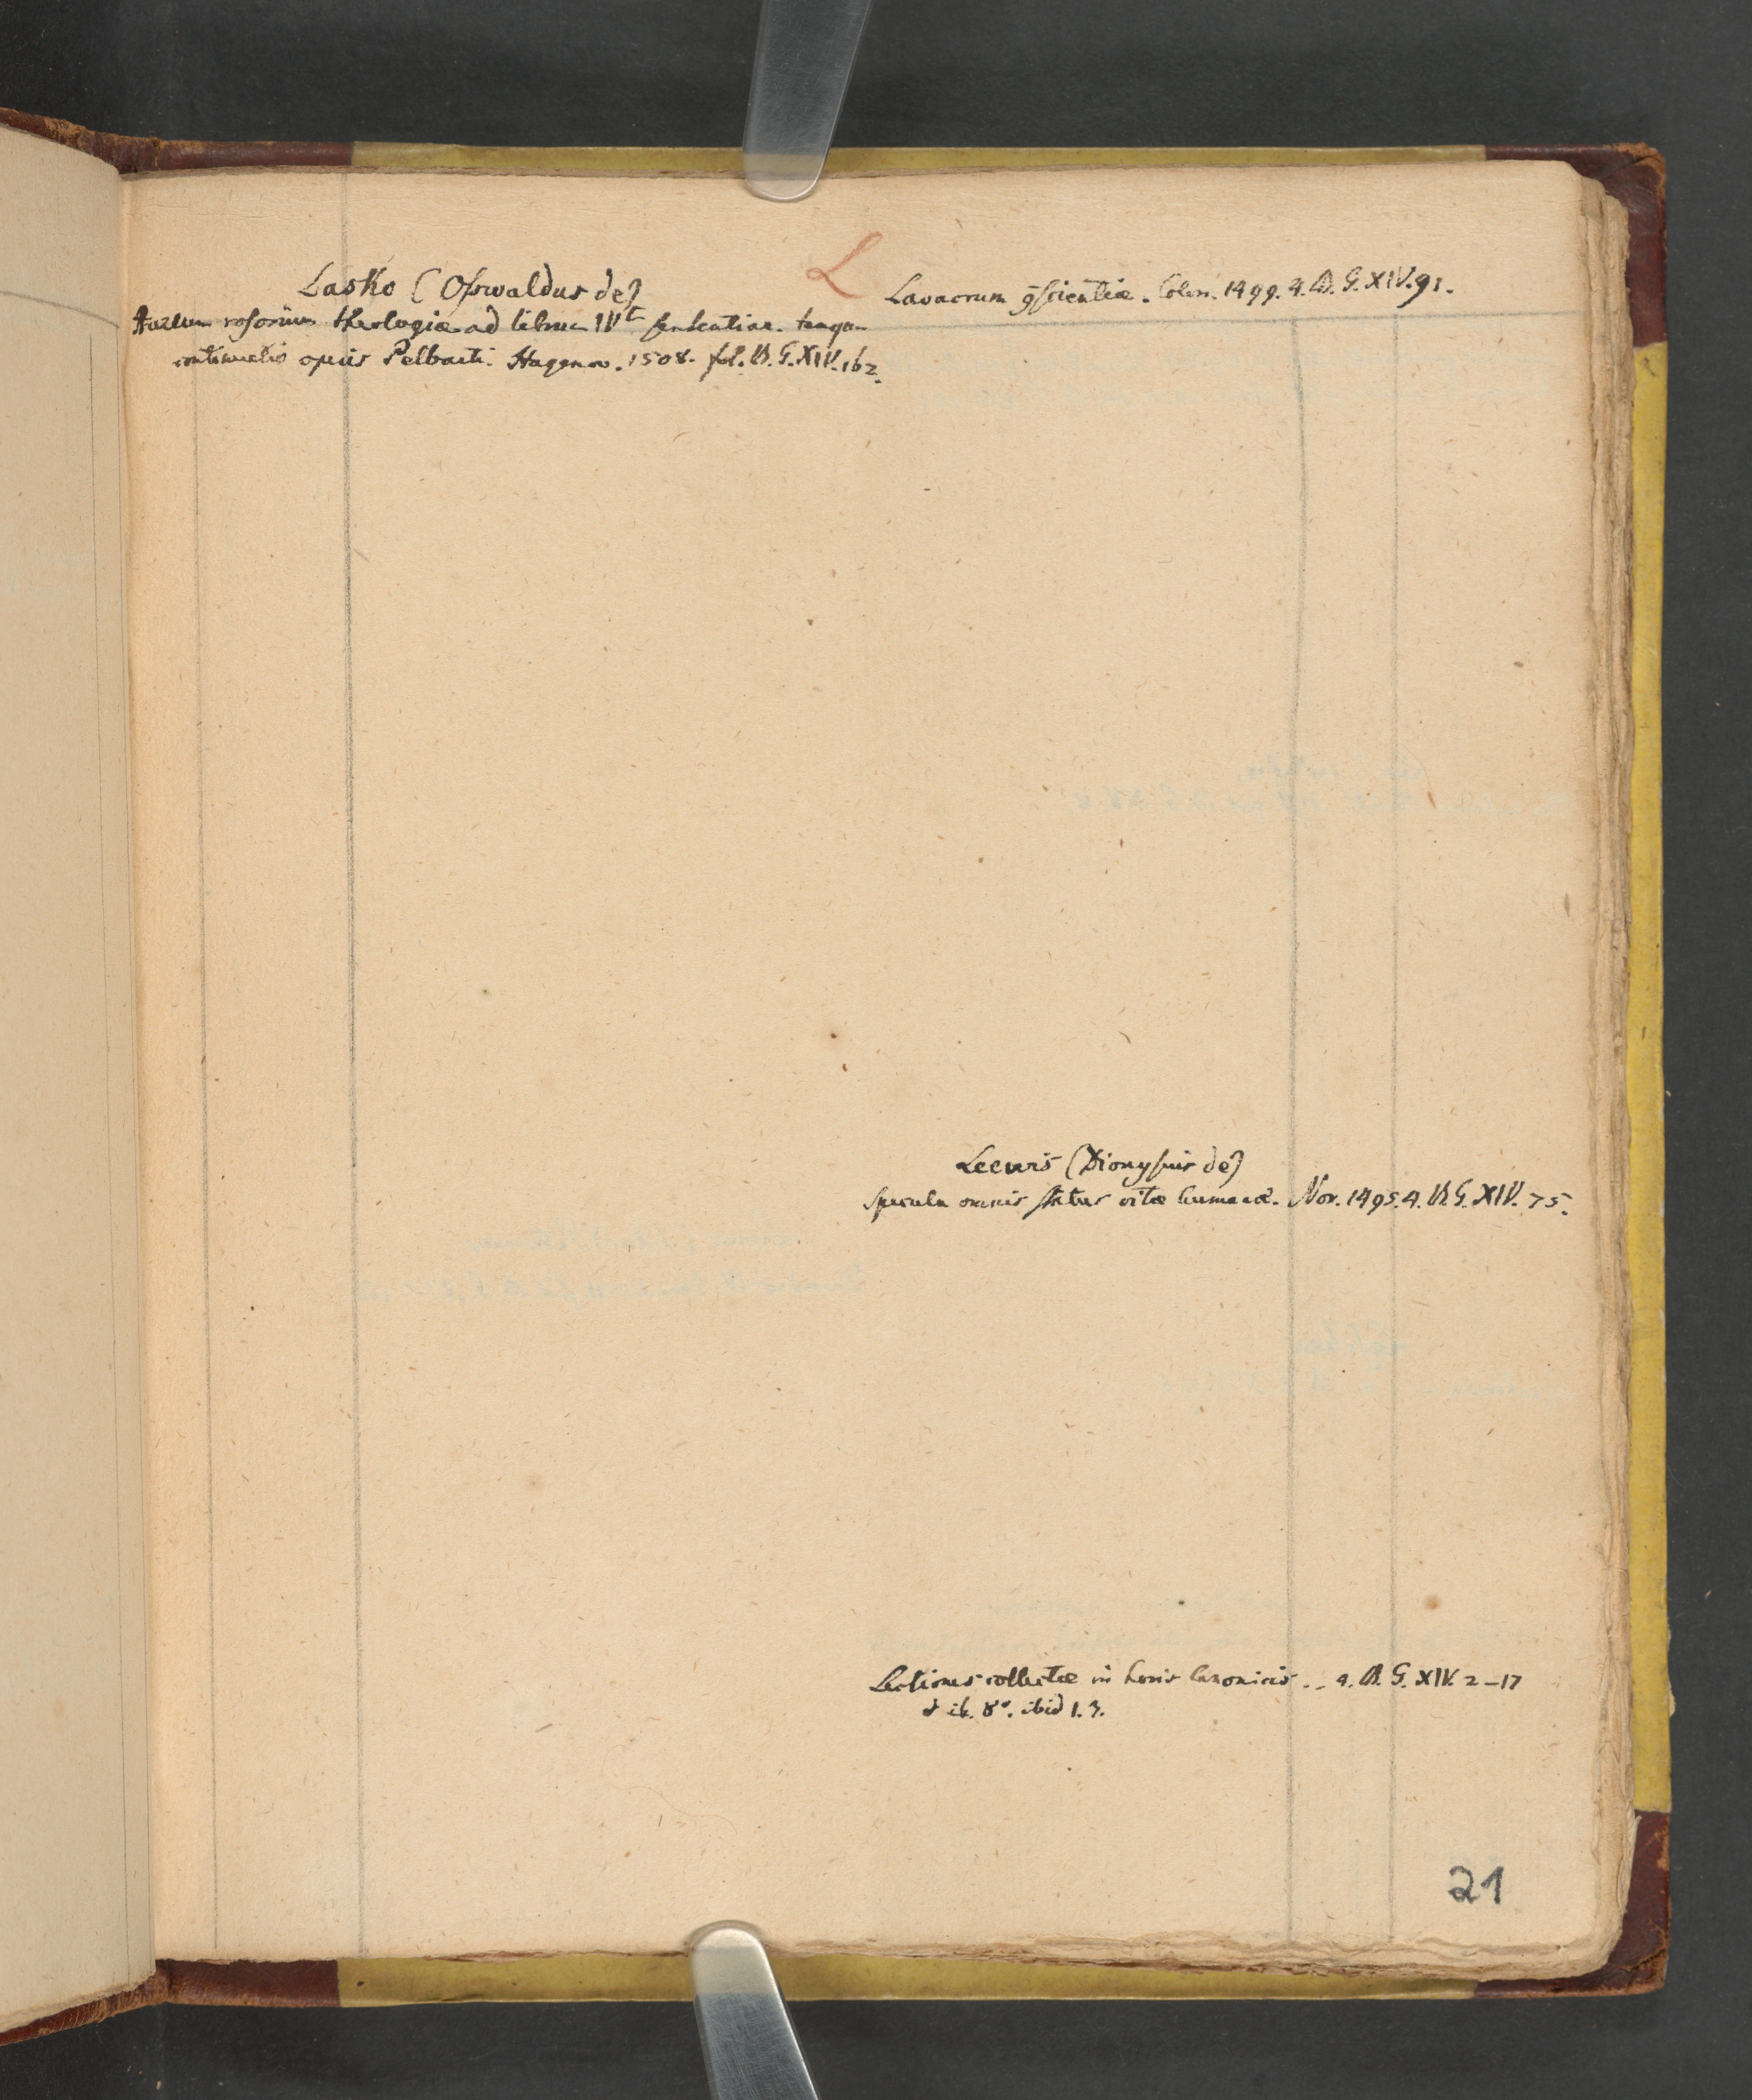 L
Lasko (Oswaldus de)
Aureum rosarium theologiæ ad librum IVt sententiar. tanqu
continuatio operis Pelbarti. Hagenov. 1508. fol. B. G. XIV. 162.
Lavacrum gscientiæ. Colon. 1499. 4. B. G. XIV. 91.
Leewis (Dionysius de)
Specula omnis status vitæ humanæ. Nor. 1495. 4. B. G. XIV. 75.
Lectiones collectæ in horis canonicis. 4. B. G. XIV. 2-17
ib. 8°. ibid 1. 3.
21